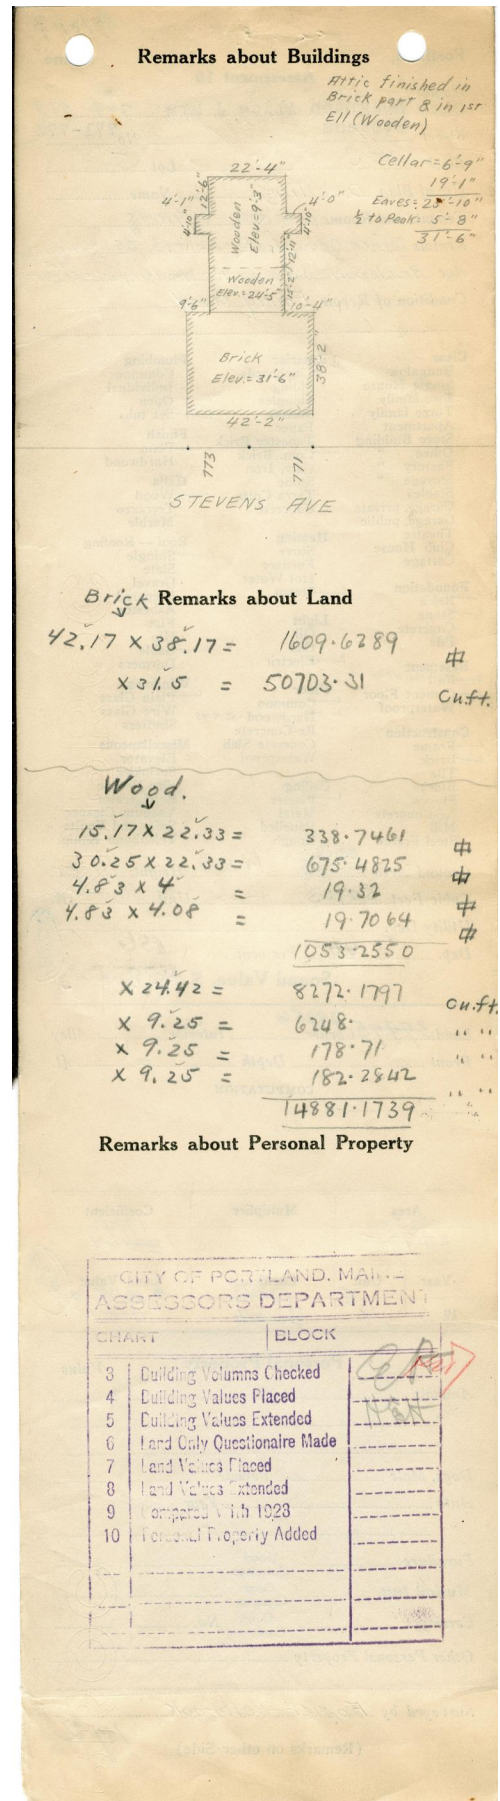 Remarks about Buildings
Attic finished in
Brick part & in 1st
Ell (Wooden)
Cellar = 6'-9"
19'-1"
Eaves = 25'-10"
½ to Peak = 5'-8"
31'-6"
22'-4"
12'-6"
4'-1"
4'-10"
4'-0"
4'-10"
Wooden
Elev. = 9'-3"
12'-11"
Wooden
Elev. = 24'-5"
15'-2"
9'-6"
10'-4"
Brick
Elev. = 31'-6"
38'-2"
42'-2"
773
771
STEVENS AVE
Brick
Remarks about Land
42.17 X 38.17 = 1609.6289
X 31.5 = 50703.31 Cu.ft.
Wood.
15.17 X 22.33 = 338.7461
30.25 X 22.33 = 675.4825
4.83 X 4 = 19.32
4.83 X 4.08 = 19.7064
1053.2550
X 24.42 = 8272.1797 Cu.ft.
X 9.25 = 6248. " "
X 9.25 = 178.71 " "
X 9.25 = 182.2842 " "
14881.1739
Remarks about Personal Property
CITY OF PORTLAND, MAINE
ASSESSORS DEPARTMENT
CHART BLOCK
3 Building Volumns Checked
4 Building Values Placed
5 Building Values Extended
6 Land Only Questionaire Made
7 Land Values Placed
8 Land Values Extended
9 Compared With 1923
10 Personal Property Added